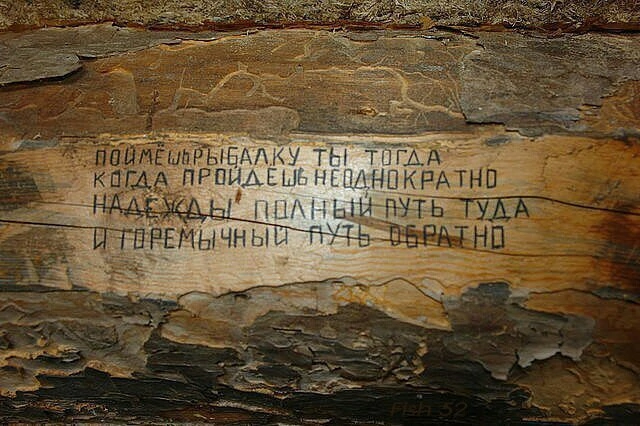 ПОЙМЁШЬ РЫБАЛКУ ТЫ ТОГДА
КОГДА ПРОЙДЕШЬ НЕОДНОКРАТНО
НАДЕЖДЫ ПОЛНЫЙ ПУТЬ ТУДА
И ГОРЕМЫЧНЫЙ ПУТЬ ОБРАТНО
Fish 52